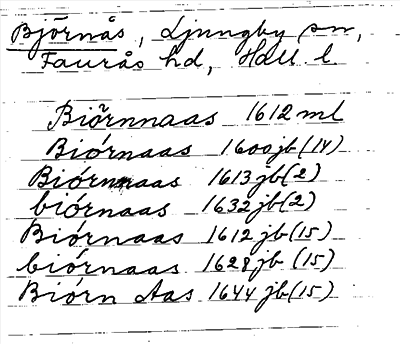 Björnås, Ljungby sn,
Faurås hd, Hall. l.
Biörnnaas 1612 ml
Biórnaas 1600 jb (14)
Biórnnaas 1613 jb (2)
biórnaas 1632 jb (2)
Biórnaas 1612 jb (15)
biórnaas 1628 jb (15)
Biórn Aas 1644 jb (15)